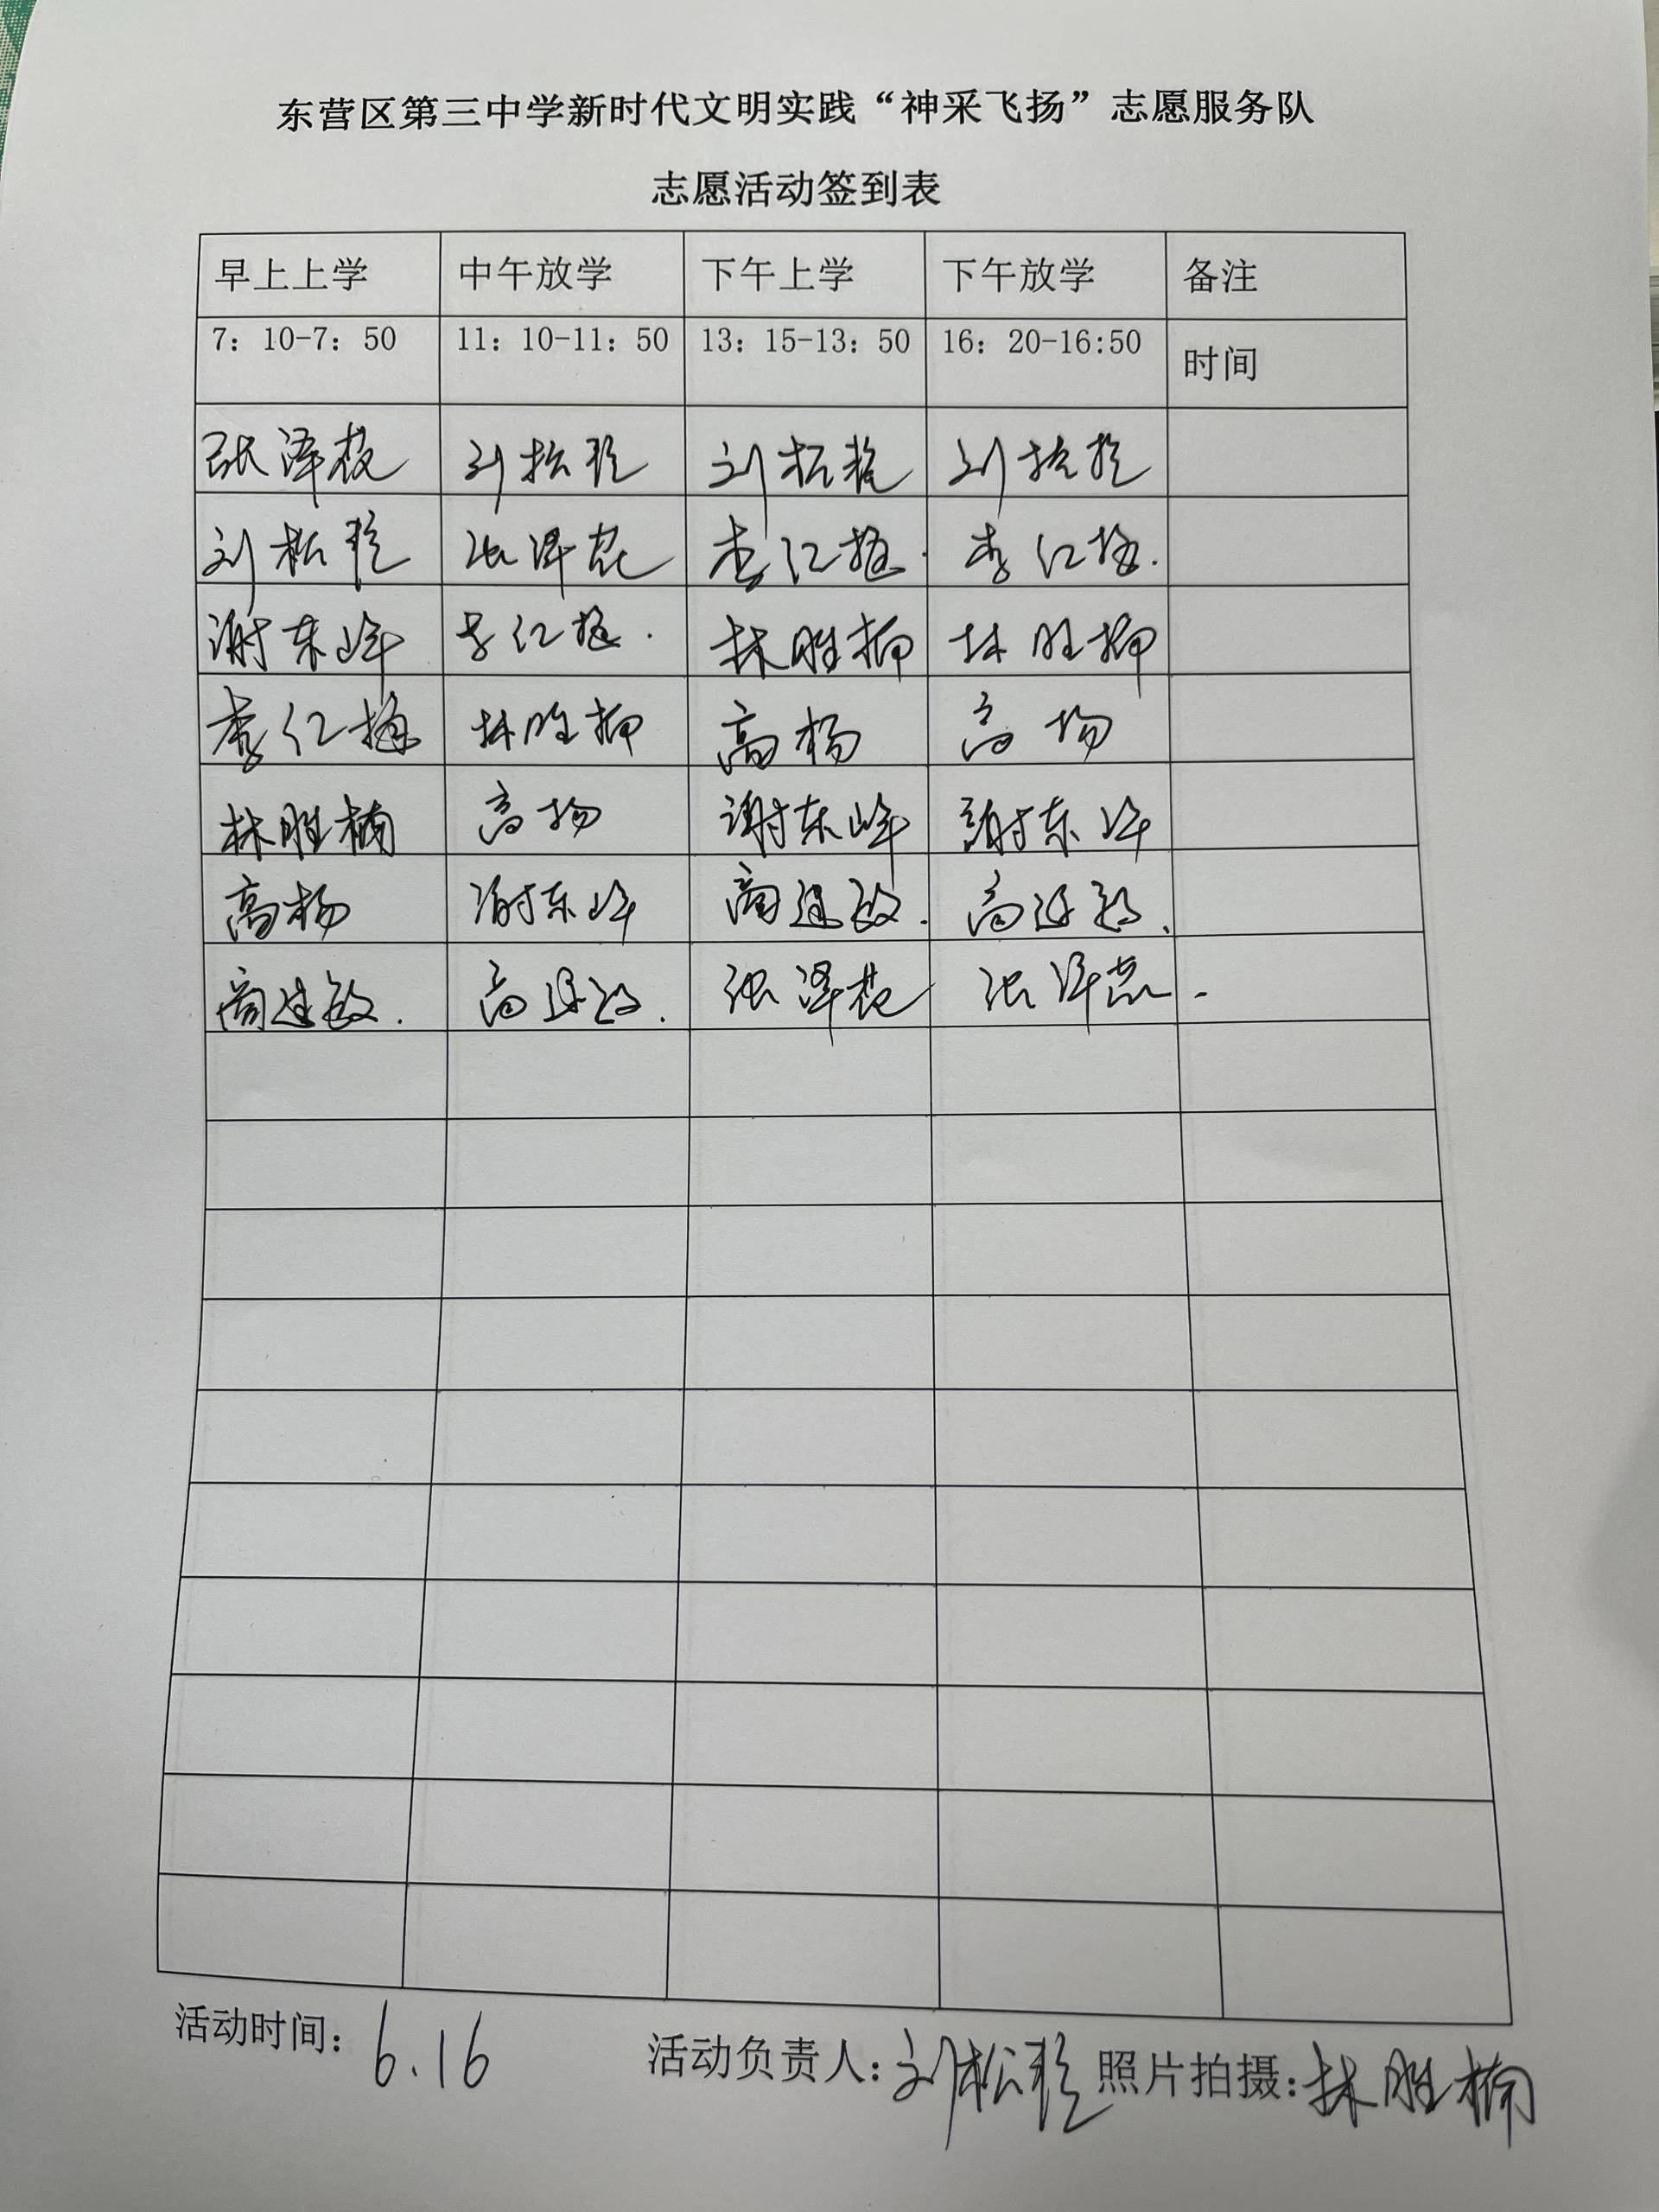 东营区第三中学新时代文明实践“神采飞扬”志愿服务队
志愿活动签到表
早上上学 中午放学 下午上学 下午放学 备注
7：10-7：50 11：10-11：50 13：15-13：50 16：20-16:50 时间
张泽花 刘松 刘松 刘松
刘松 张泽花 李红梅. 李红梅.
谢东峰 李红梅. 林胜楠 林胜楠
李红梅 林胜楠 高杨 高杨
林胜楠 高杨 谢东峰 谢东峰
高杨 谢东峰 商建敏. 商建敏.
商建敏. 商建敏. 张泽花 张泽花.
活动时间：6.16 活动负责人：刘松 照片拍摄：林胜楠